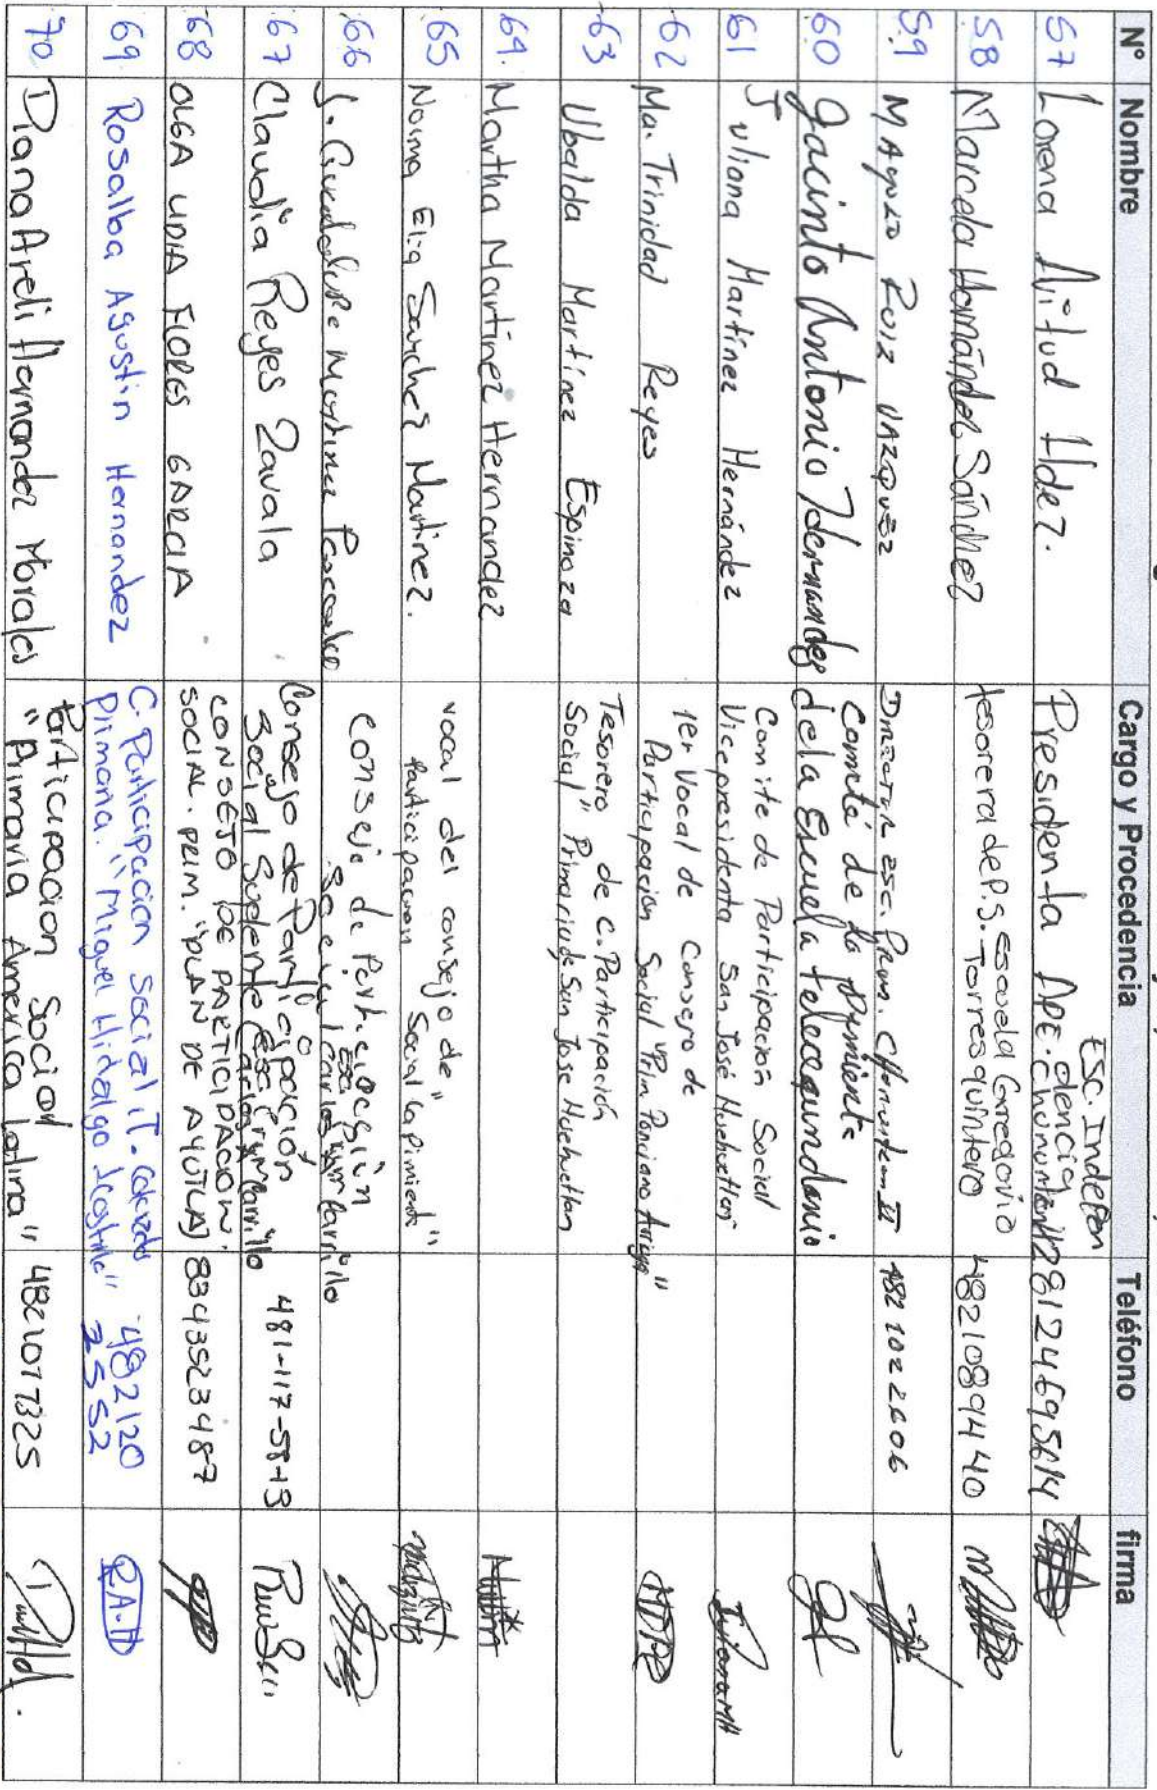 N° Nombre Cargo y Procedencia Teléfono firma
57 Lorena Hdez. Presidenta APE. Esc. Indepen
dencia
58 Marcela Hernández Sánchez tesorera de P.S. escuela Gregorio
Torres quintero 4821089440
59 Ruiz Vazquez Director Esc. Prim. II 482 102 2606
60 Jacinto Antonio Hernandez Comité de la pimienta
de la Escuela telecqundaria
61 Juliana Martínez Hernández Comite de Participación Social
Vicepresidenta San José Huehuetlan JulianaMH
62 Ma. Trinidad Reyes 1er Vocal de Consejo de
Participación Social "Prim. Ponciano Arriaga"
63 Ubalda Martínez Espinoza Tesorero de C. Participación
Social" Primaria de San Jose Huehuetlan
64. Martha Martinez Hernandez
65 Norma Elia Sanchez Martinez. vocal del consejo de
participacion Social "la pimienta"
66 J. Guadalupe Martinez consejo de Participación
Social Carrillo
67 Claudia Reyes Zavala Consejo de Participación
Social Suplente Carrillo 481-117-58-13
68 OLGA LIDIA FLORES GARCIA CONSEJO DE PARTICIPACION.
SOCIAL. PRIM. "PLAN DE AYUTLA) 8343523487
69 Rosalba Agustin Hernandez C. Participación Social
Primaria. "Miguel Hidalgo 482120
2552 R.A.H
70 Diana Areli Hernandez Morales Participacion Social
"Primaria América latina" 4821077325